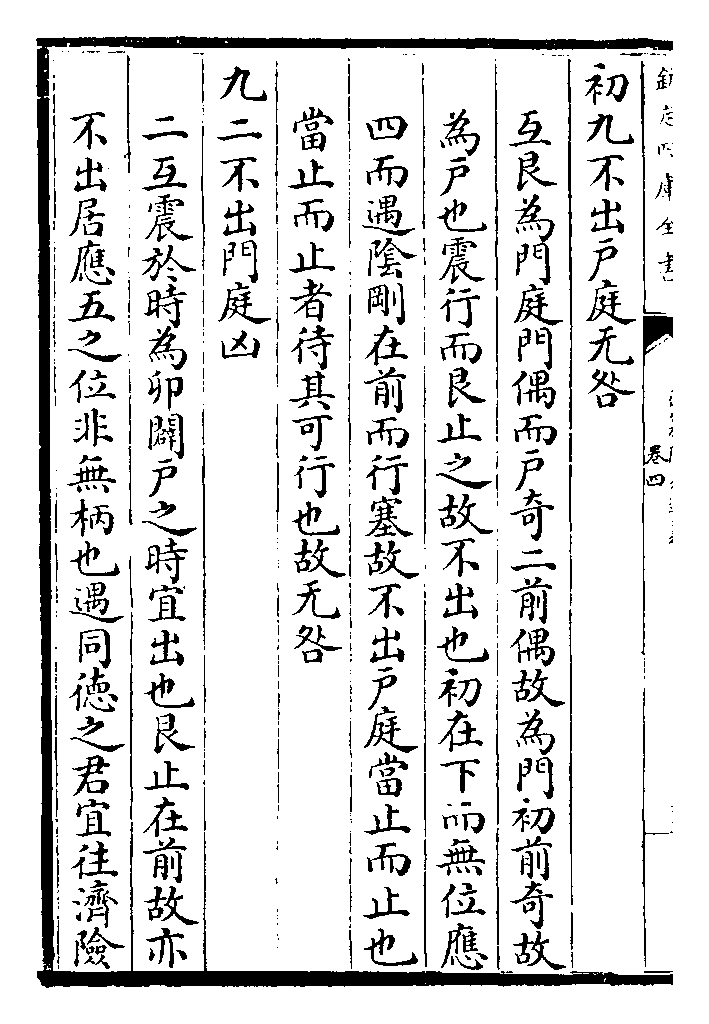 初九不出戸庭无咎
互艮為門庭門偶而戸奇二前偶故為門初前奇故
為戸也震行而艮止之故不出也初在下而無位應
四而遇陰剛在前而行塞故不出戸庭當止而止也
當止而止者待其可行也故无咎
九二不出門庭凶
二互震於時為卯闢戸之時宜出也艮止在前故亦
不出居應五之位非無柄也遇同徳之君宜往濟險
欽定四庫全書
卷四